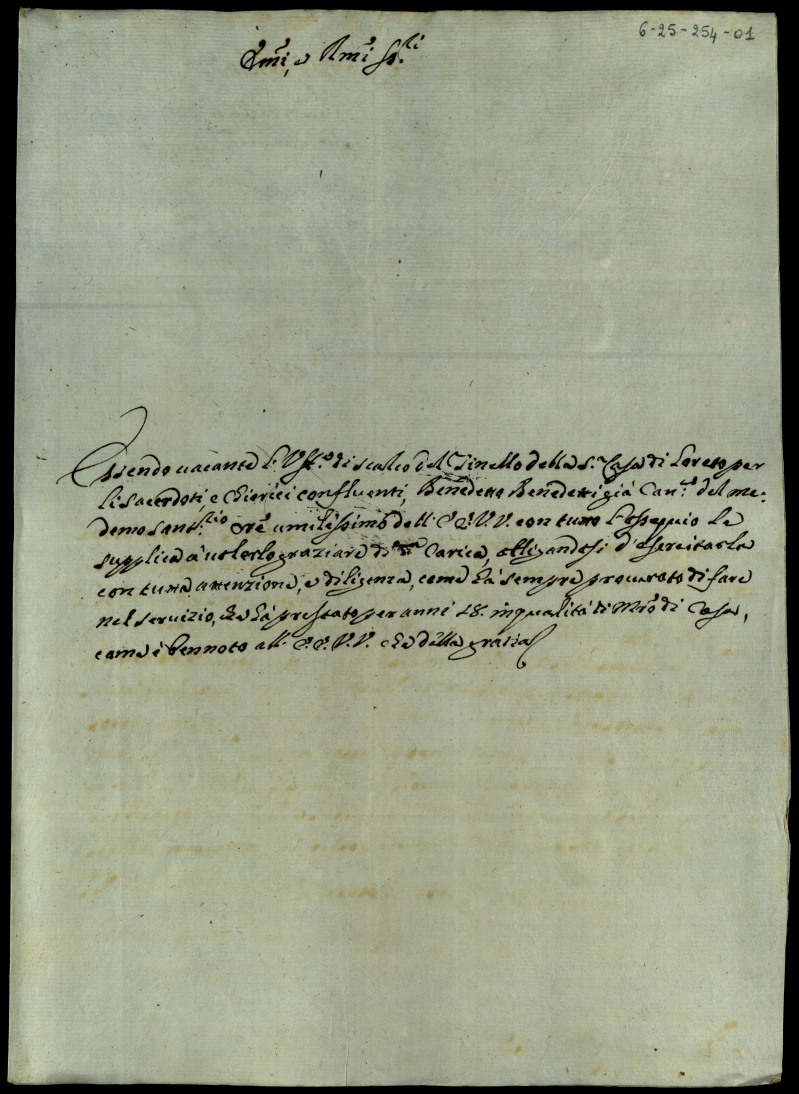 6-25-254-01
Emi, e Rmi Sig.ri
Essendo vacante l'Off.o di scalco del Tinello della S.a Casa di Loreto per
li sacerdoti, e Chierici confluenti, Benedetto Benedetti già Can.re del me:
demo Sant.rio Ore umilissimo dell' E.E. V.V. con tutto l'osseqquio le
supplica à volerlo graziare di Carica, obligandosi d'esercitarla
con tutta attenzione, e diligenza, come hà sempre procurato di fare
nel servizio, che hà prestato per anni 18. in qualità di Mro di Casa,
come è ben noto all' E.E. V.V. che della grazia